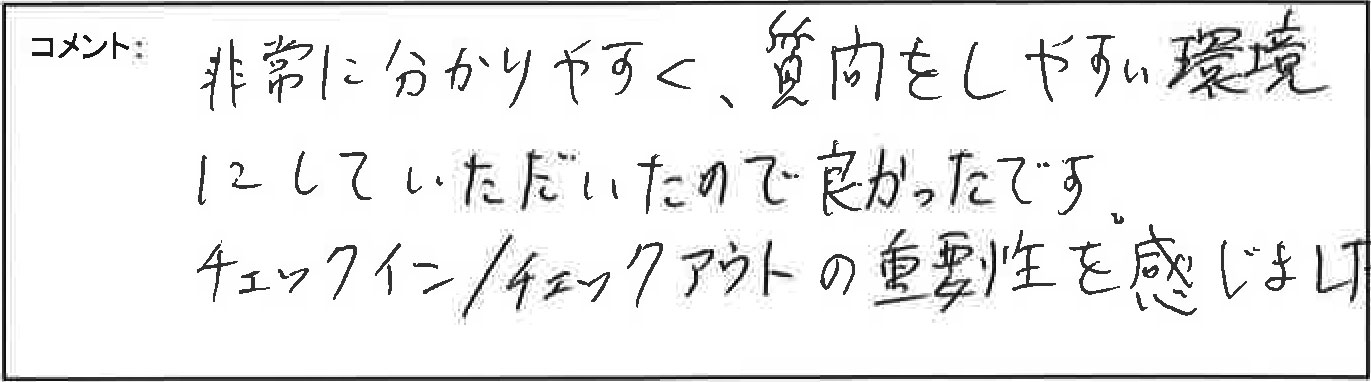 コメント: 非常に分かりやすく、質問をしやすい環境
にしていただいたので良かったです。
チェックイン/チェックアウトの重要性を感じました